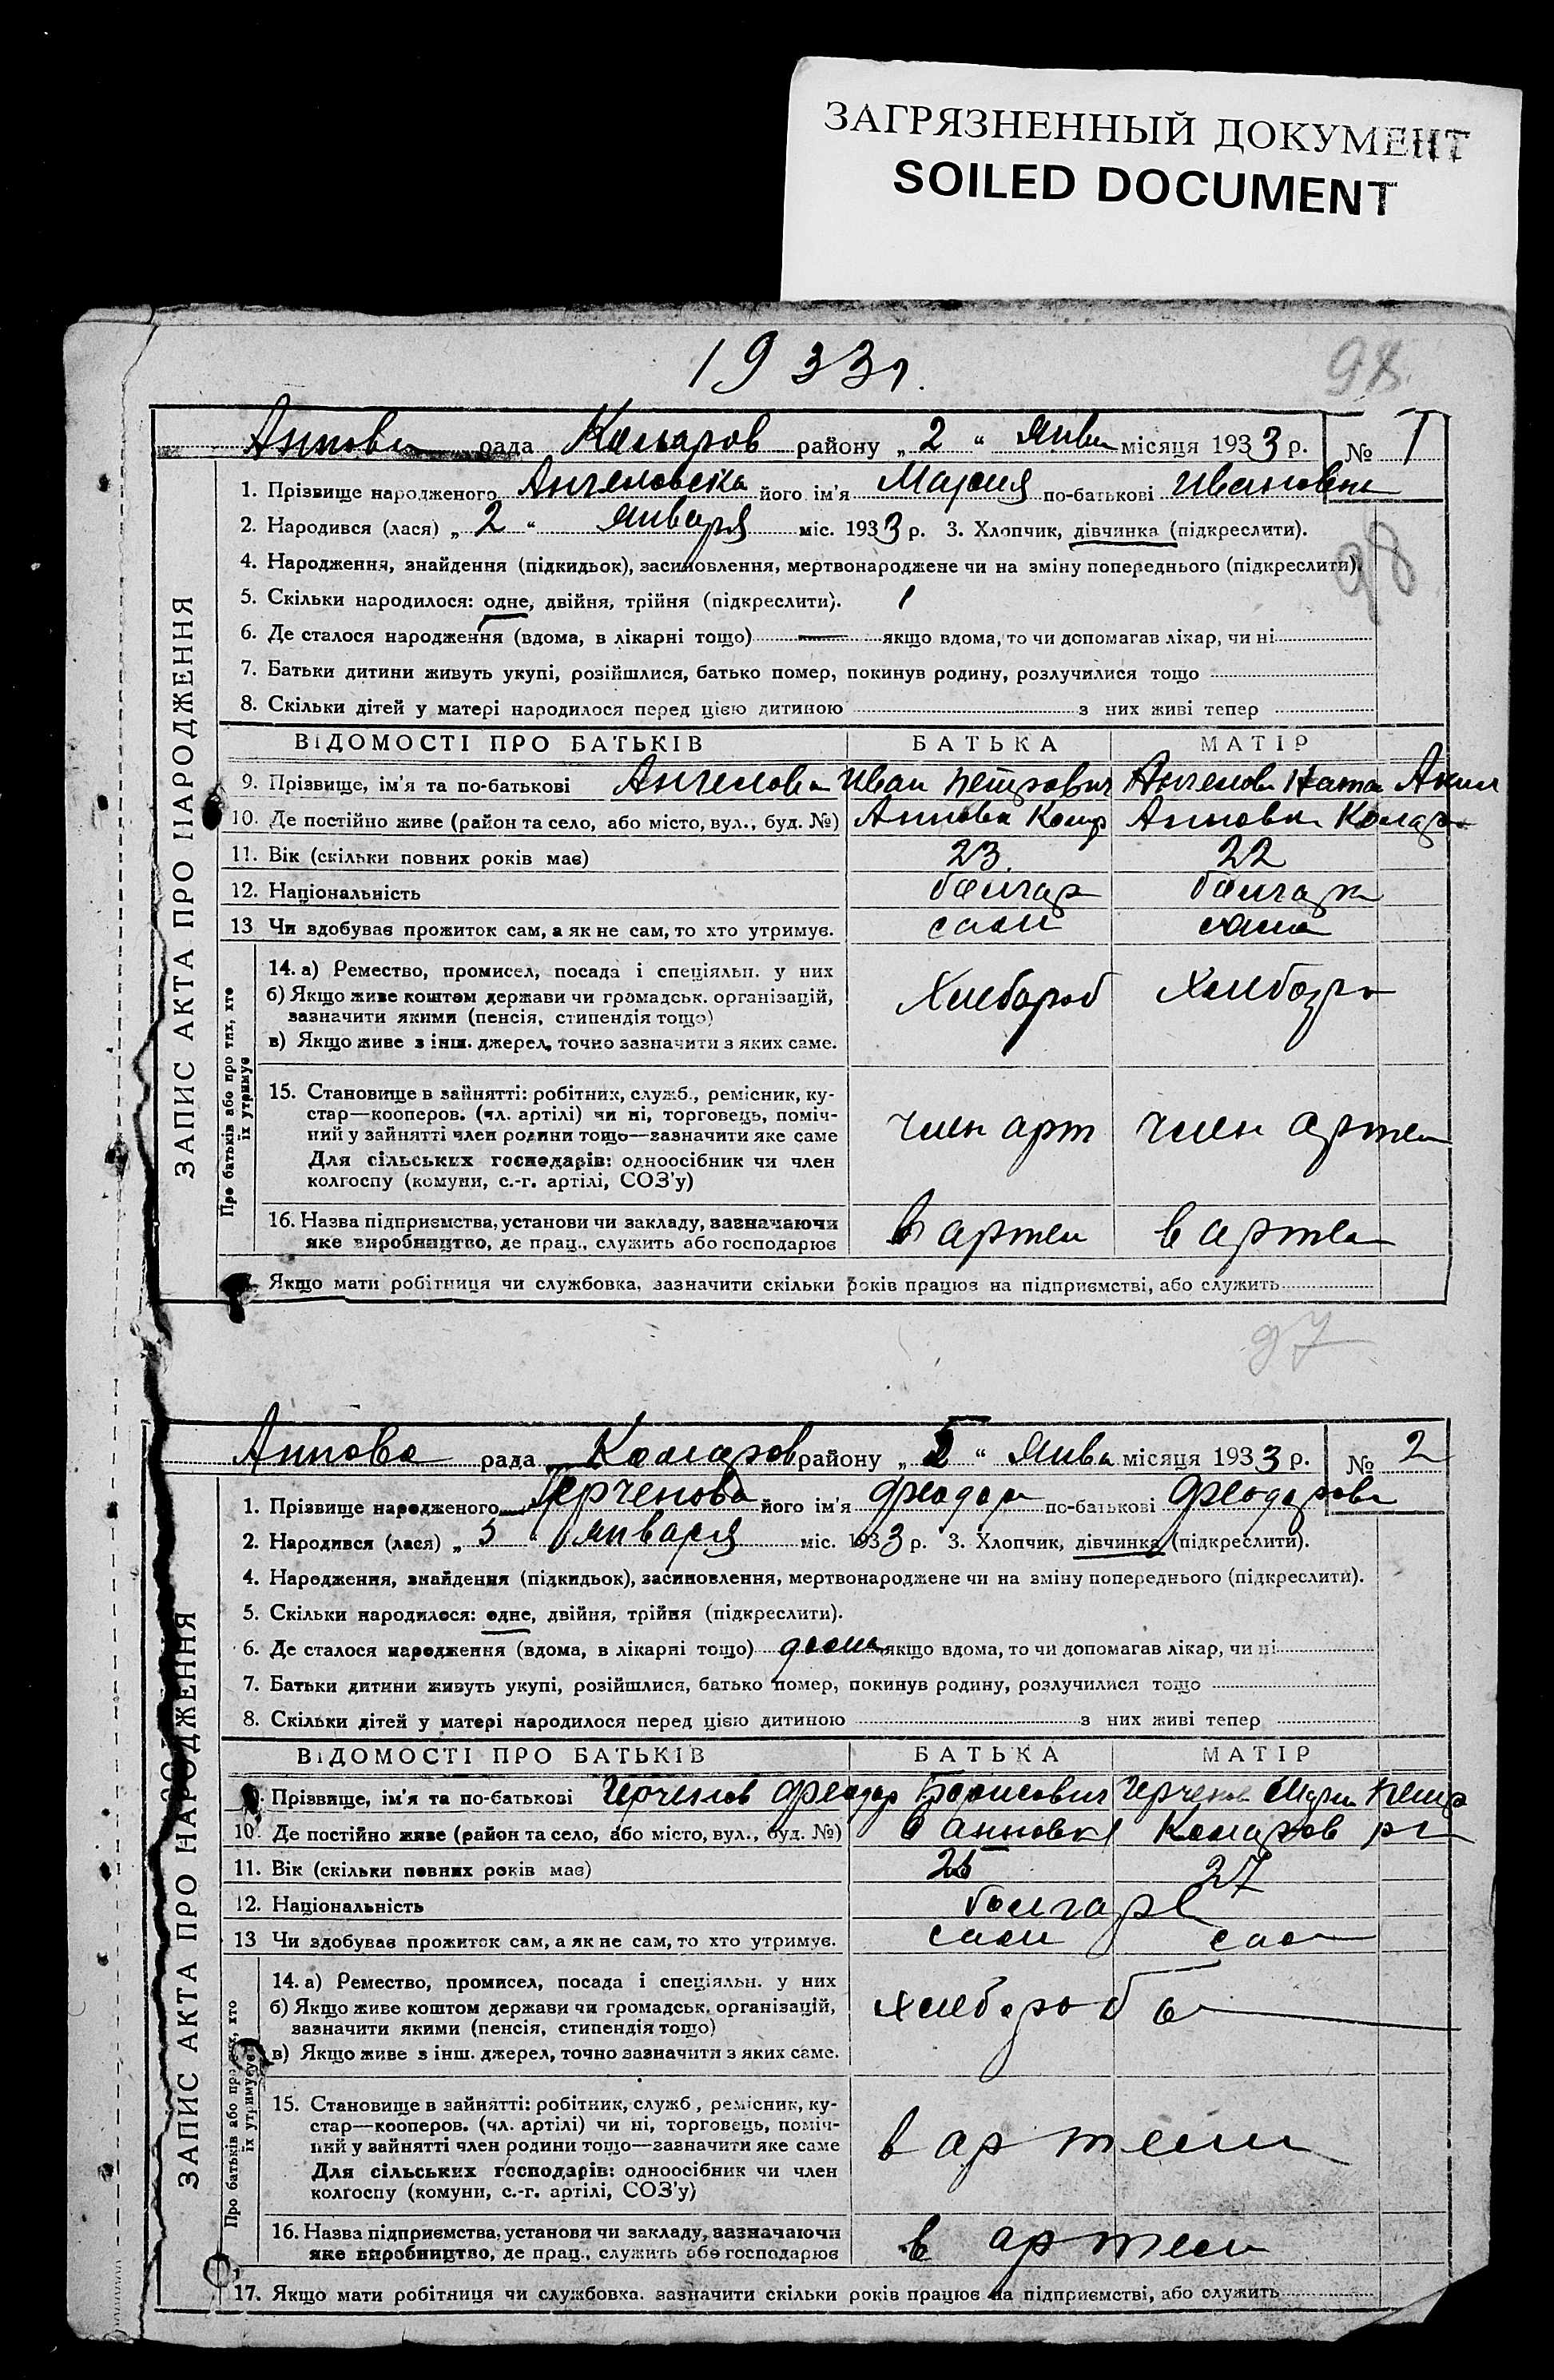 ЗАГРЯЗНЕННЫЙ ДОКУМЕНТ
SOILED DOCUMENT
1933 г.
98
рада Комаров району „ 2 “ янва місяця 1933 р. № 1
1. Прізвище народженого його ім'я Мария по-батькові Ивановна
2. Народився (лася) „ 2 “ января міс. 1933 р. 3. Хлопчик, дівчинка (підкреслити).
98
4. Народження, знайдення (підкидьок), засиновлення, мертвонароджене чи на зміну попереднього (підкреслити).
5. Скільки народилося: одне, двійня, трійня (підкреслити).
6. Де сталося народження (вдома, в лікарні тощо) — якщо вдома, то чи допомагав лікар, чи ні
7. Батьки дитини живуть укупі, розійшлися, батько помер, покинув родину, розлучилися тощо
8. Скільки дітей у матері народилося перед цією дитиною з них живі тепер
ВІДОМОСТІ ПРО БАТЬКІВ БАТЬКА МАТІР
9. Прізвище, ім'я та по-батькові Иван Петрович
10. Де постійно живе (район та село, або місто, вул., буд. №)
11. Вік (скільки повних років має) 23 22
12. Національність болгар
13 Чи здобував прожиток сам, а як не сам, то хто утримує. сам сама
ЗАПИС АКТА ПРО НАРОДЖЕННЯ
Про батьків або про тих, хто
їх утримує
14. а) Ремество, промисел, посада і спеціяльн. у них
б) Якщо живе коштом держави чи громадськ. організацій, Хлебороб
зазначити якими (пенсія, стипендія тощо)
в) Якщо живе з інш. джерел, точно зазначити з яких саме.
15. Становище в зайнятті: робітник, служб., ремісник, ку-
стар—кооперов. (чл. артілі) чи ні, торговець, поміч- член арт член артел
ний у зайнятті член родини тощо—зазначити яке саме
Для сільських господарів: одноосібник чи член
колгоспу (комуни, с.-г. артілі, СОЗ'у)
16. Назва підприємства, установи чи закладу, зазначаючи в артел в артел
яке виробництво, де прац., служить або господарює
Якщо мати робітниця чи службовка, зазначити скільки років працює на підприємстві, або служить
97
рада Комаров району „ 5 “ янва місяця 1933 р. № 2
1. Прізвище народженого його ім'я Феодора по-батькові Феодоровн
2. Народився (лася) „ 5 “ января міс. 1933 р. 3. Хлопчик, дівчинка (підкреслити).
4. Народження, знайдення (підкидьок), засиновлення, мертвонароджене чи на зміну попереднього (підкреслити).
5. Скільки народилося: одне, двійня, трійня (підкреслити).
6. Де сталося народження (вдома, в лікарні тощо) дома якщо вдома, то чи допомагав лікар, чи ні
7. Батьки дитини живуть укупі, розійшлися, батько помер, покинув родину, розлучилися тощо
8. Скільки дітей у матері народилося перед цією дитиною з них живі тепер
ВІДОМОСТІ ПРО БАТЬКІВ БАТЬКА МАТІР
Прізвище, ім'я та по-батькові Феодор Борисович
10. Де постійно живе (район та село, або місто, вул., буд. №) Комаров
11. Вік (скільки повних років має) 27
12. Національність болгаре
13 Чи здобував прожиток сам, а як не сам, то хто утримує. сам
ЗАПИС АКТА ПРО НАРОДЖЕННЯ
Про батьків або про тих, хто
їх утримує
14. а) Ремество, промисел, посада і спеціяльн. у них
б) Якщо живе коштом держави чи громадськ. організацій, хлебороб
зазначити якими (пенсія, стипендія тощо)
в) Якщо живе з інш. джерел, точно зазначити з яких саме.
15. Становище в зайнятті: робітник, служб., ремісник, ку-
стар—кооперов. (чл. артілі) чи ні, торговець, поміч-
ний у зайнятті член родини тощо—зазначити яке саме в артели
Для сільських господарів: одноосібник чи член
колгоспу (комуни, с.-г. артілі, СОЗ'у)
16. Назва підприємства, установи чи закладу, зазначаючи в артели
яке виробництво, де прац., служить або господарює
17. Якщо мати робітниця чи службовка. зазначити скільки років працює на підприємстві, або служить